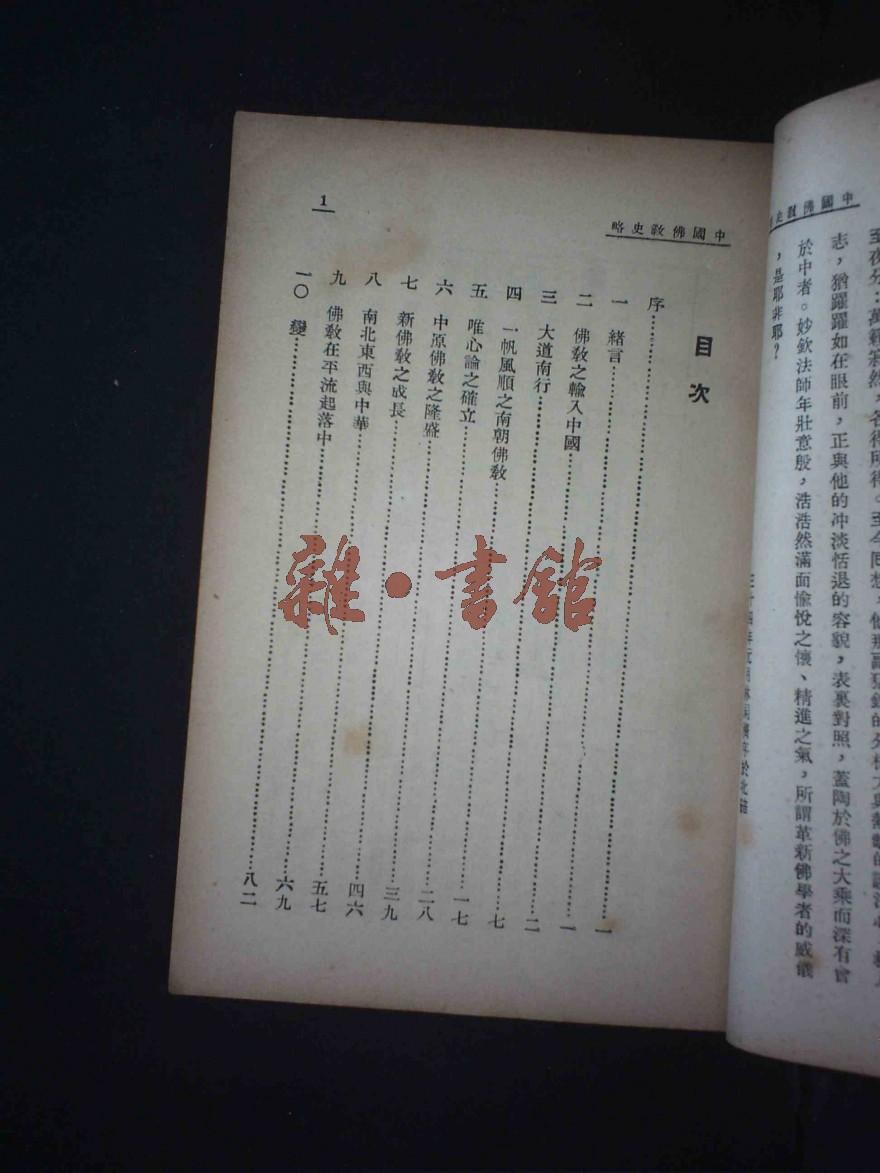 中國佛敎史
至夜分：萬籟寂然，各得所得。至今回想，他那副
志，猶躍躍如在眼前，正與他的冲淡恬退的容貌，表裏對照，蓋陶於佛之大乘而深有會
於中者。妙欽法師年壯意殷，浩浩然滿面愉悅之懷、精進之氣，所謂革新佛學者的威儀
，是耶非耶？
中國佛敎史略
1
目次
序……一
一 緒言……一
二 佛敎之輸入中國……二
三 大道南行……七
四 一帆風順之南朝佛敎……一七
五 唯心論之確立……二八
六 中原佛敎之隆盛……三九
七 新佛敎之成長……四六
八 南北東西與中華……五七
九 佛敎在平流起落中……六九
一〇 變……八二
雜·書館